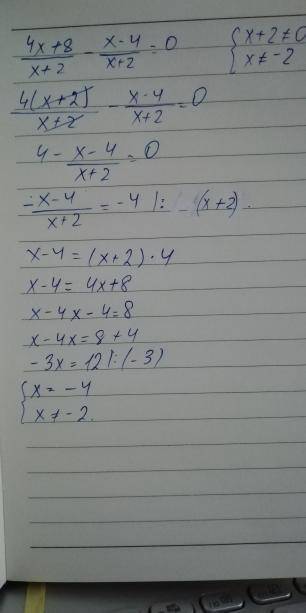 (4x+8)/(x+2) - (x-4)/(x+2) = 0 { x+2≠0
x≠-2
4(x+2)/(x+2) - (x-4)/(x+2) = 0
4 - (x-4)/(x+2) = 0
-(x-4)/(x+2) = -4 |: -(x+2).
x-4 = (x+2)·4
x-4 = 4x+8
x-4x-4=8
x-4x=8+4
-3x=12|:(-3)
{ x = -4
x ≠ -2.